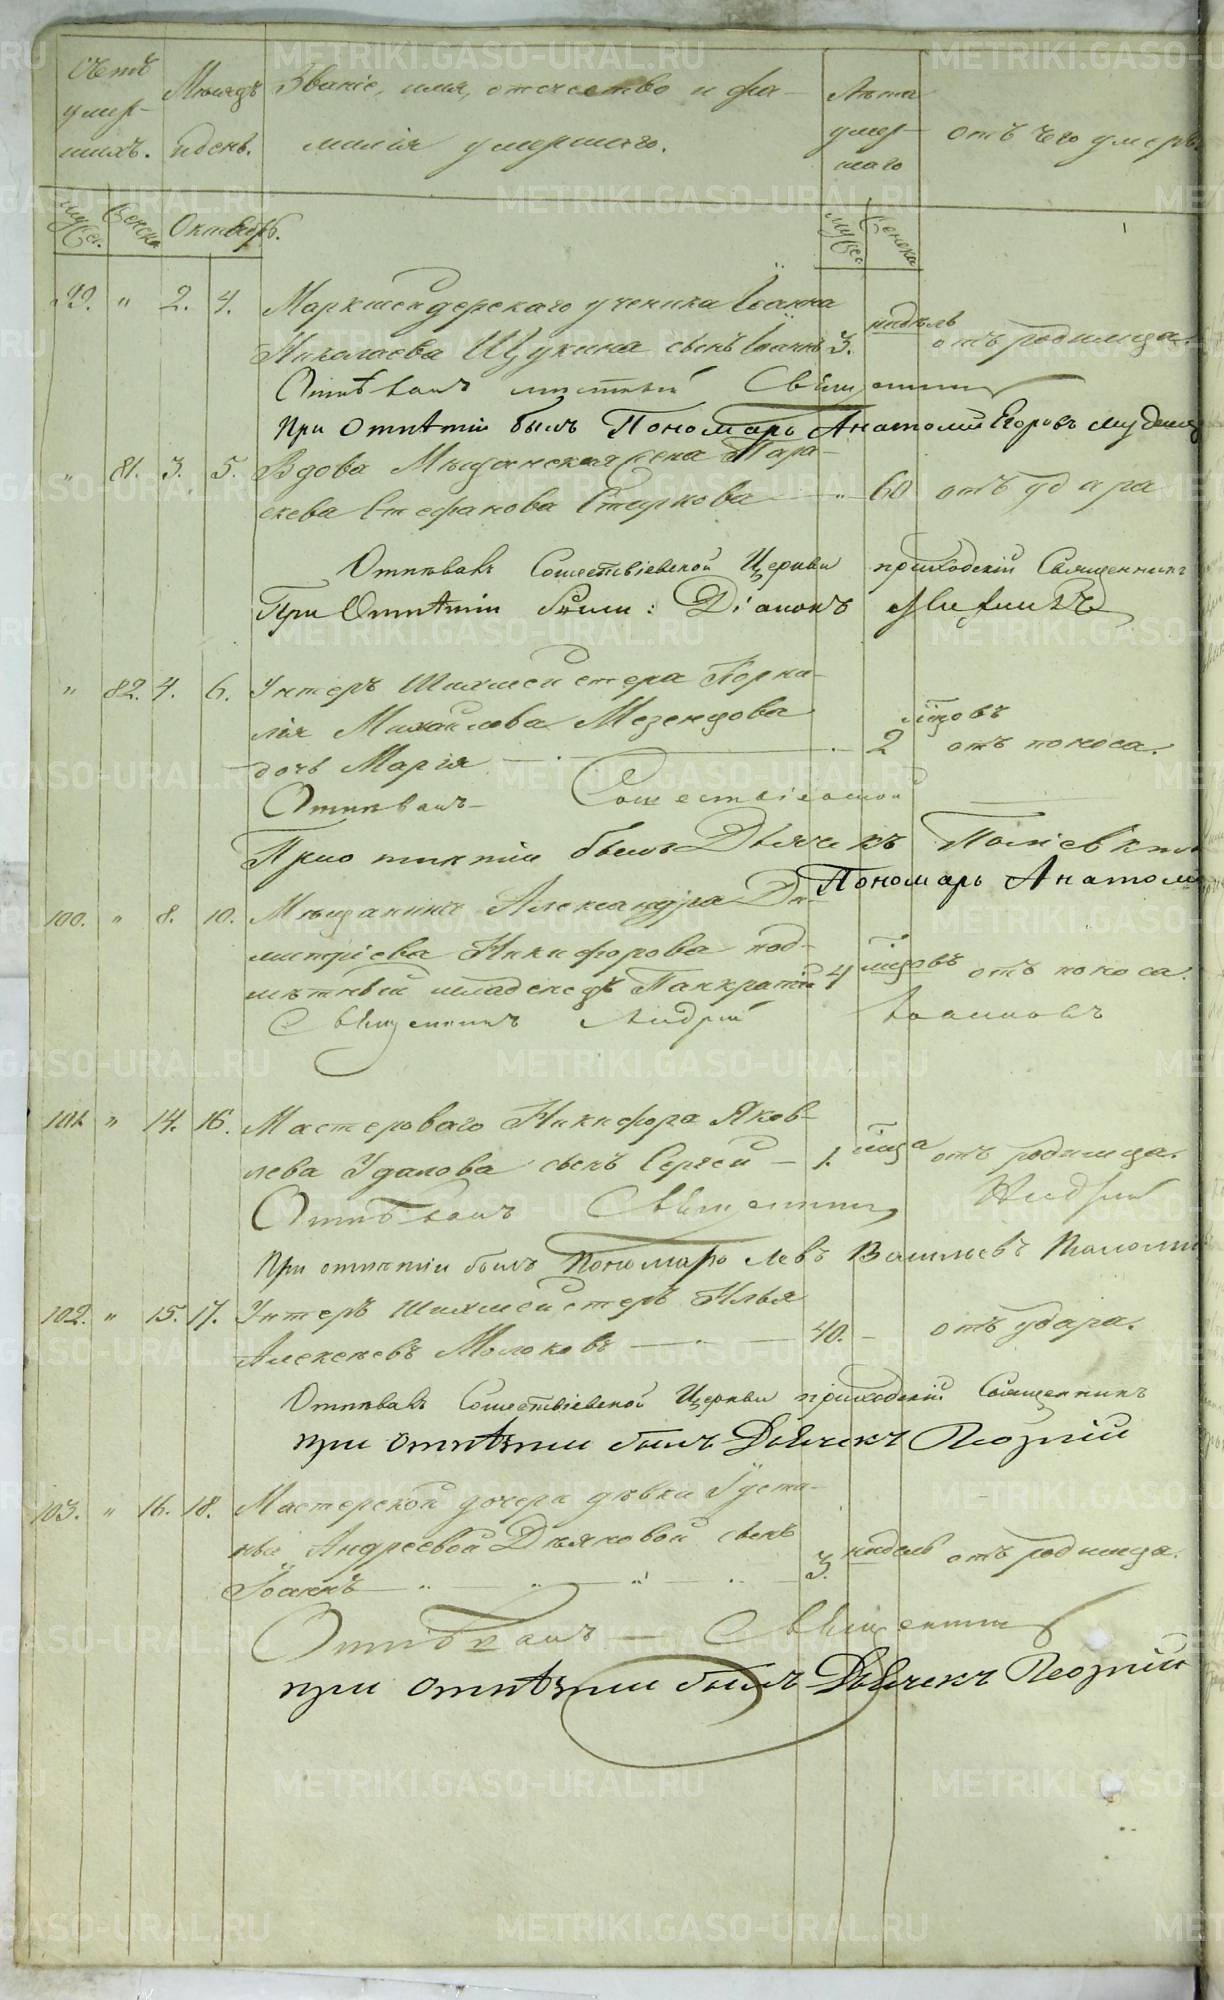 Счетъ умер- шихъ.
Мѣсяцъ и день.
Званіе, имя, отечество и фа-
милія умершаго.
Лѣта умер- шаго
отъ чего умеръ.
Муж. Женска Октябрь.
Муж. Женска
99. " 2. 4. Маркшейдерскаго ученика Іоанна
Николаева Щукина сынъ Іоаннъ 3. недѣль отъ родимца.
Отпѣвалъ мѣстный Священникъ
При отпѣтіи былъ Пономарь Анатолій Егоровъ
" 81. 3. 5. Вдова Мѣщанская жена Пара-
скева Стефанова " 60 отъ удара
Отпѣвалъ Сошествіевской Церкви приходскій Священникъ
При Отпѣтіи были: Діаконъ
" 82. 4. 6. Унтеръ Шихмейстера Корни-
лія Михайлова Мезенцова
дочь Марія 2 мѣсяцовъ отъ поноса.
Отпѣвалъ Сошествіевской
При отпѣтіи былъ Дьячекъ
Пономарь Анатолій
100. " 8. 10. Мѣщанина Александра Ди-
митріева Никифорова под-
мѣтный младенецъ Панкратій 4 мѣсяцовъ отъ поноса.
Священникъ Андрей Іоанновъ
101. " 14. 16. Мастероваго Никифора Яков-
лева Удалова сынъ Сергей 1. мѣсяца отъ родимца.
Отпѣвалъ Священникъ Андрей
При отпѣтіи былъ Пономарь Левъ Васильевъ
102. " 15. 17. Унтеръ Шихмейстеръ Илья
Алексѣевъ Молоковъ 40. - отъ удара.
Отпѣвалъ Сошествіевской Церкви приходскій Священникъ
при отпѣтіи былъ Дьячекъ Георгій
103. " 16. 18. Мастерской дочери дѣвки Іуста-
ньи Андреевой Дьяковой сынъ
Іоаннъ 3. недель отъ родимца.
Отпѣвалъ Священникъ
при отпѣтіи былъ Дьячекъ Георгій